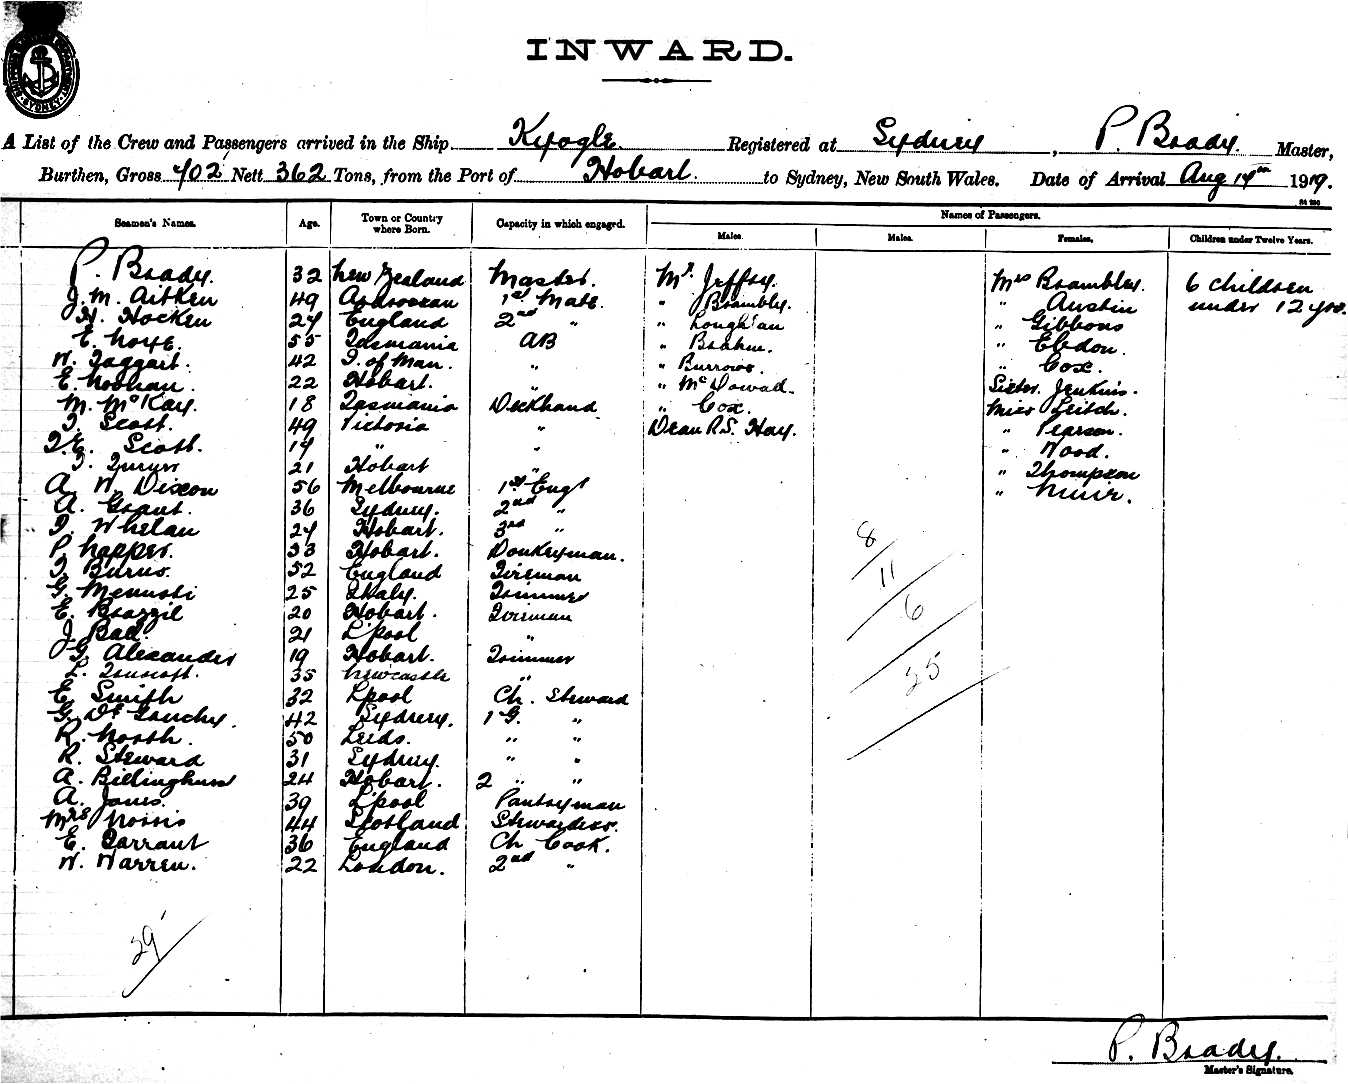 INWARD.
SYDNEY
A List of the Crew and Passengers arrived in the Ship Kyogle. Registered at Sydney, P. Brady. Master,
Burthen, Gross 402 Nett 362 Tons, from the Port of Hobart. to Sydney, New South Wales. Date of Arrival Aug 14th 1919.
Names of Passengers.
Seamen's Names. Age. Town or Country where Born. Capacity in which engaged. Males. Males. Females. Children under Twelve Years.
P. Brady. 32 New Zealand Master. Mr. Jeffrey. Mrs Brambley. 6 children
J. M. Aitken 49 1st Mate. " Brambley. " Austin under 12 yrs.
H. Hocken 24 England 2nd " " " Gibbons
E. 55 Tasmania AB " " Ebdon.
W. Taggart. 42 I. of Man. " " Burrows. " Cox.
E. Noonan. 22 Hobart. " " McDowad. Sister. Jenkins.
M. McKay. 18 Tasmania Deckhand " Cox. Miss Leitch.
T. Scott. 49 Victoria " Dean R.S. Hay. " Pearson.
T.E. Scott. 19 " " " Wood.
T. 21 Hobart " " Thompson
A. W. Dixon 56 Melbourne 1st Engr " Muir.
A. Grant. 36 Sydney. 2nd "
T. Whelan 24 Hobart. 3rd "
P. Napper. 33 Hobart. Donkeyman.
T. Burns. 52 England Fireman
G. 25 Italy. Trimmer
E. Brazzil 20 Hobart. Fireman
J. Ball. 21 L'pool "
G. Alexander 19 Hobart. Trimmer
L. 35 Newcastle "
E. Smith 32 L'pool Ch. Steward
G. De Gruchy. 42 Sydney. 1 G. "
R. North. 50 Leeds. " "
R. Steward 31 Sydney. " "
A. Billinghurst 24 Hobart. 2 " "
A. Jones. 39 L'pool Pantryman
Mrs Norris 44 Scotland Stewardess.
E. Garrant 36 England Ch Cook.
W. Warren. 22 London. 2nd "
8
11
6
25
29
P. Brady.
Master's Signature.